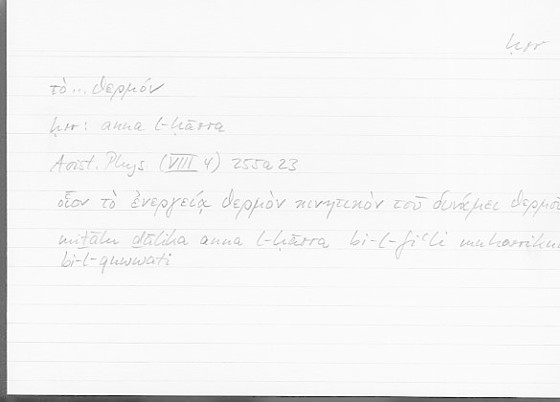 ḥrr
τὸ... θερμόν
ḥrr: anna l-ḥārra
Arist. Phys (VIII 4) 255a23
οἷον τὸ ἐνεργείᾳ θερμὸν κινητικὸν τοῦ δυνάμει θερμοῦ
miṯālu ḏālika anna l-ḥārra bi-l-fiʿli muḥarriku
bi-l-quwwati